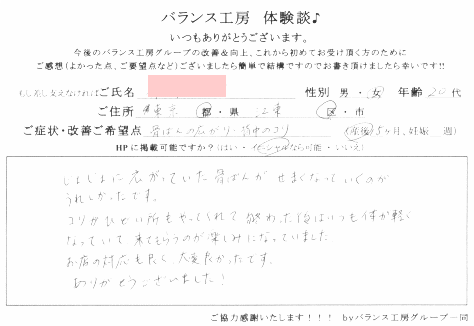 バランス工房 体験談♪
いつもありがとうございます。
今後のバランス工房グループの改善&向上、これから初めてお受け頂く方のために
ご感想(よかった点、ご要望点など)ございましたら簡単で結構ですのでお書き頂けましたら幸いです!!
もし差し支えなければご氏名 性別 男・女 年齢 20代
ご住所 東京 都・県 江東 区・市
ご症状・改善ご希望点 骨ばんの広がり・背中のコリ (産後5ヶ月、妊娠 週)
HPに掲載可能ですか?(はい・イニシャルなら可能・いいえ)
じょじょに広がっていた骨ばんがせまくなっていくのが
うれしかったです。
コリがひどい所もやってくれて終わった後はいつも体が軽く
なっていて来てもらうのが楽しみになっていました
お店の対応も良く、大変良かったです。
ありがとうございました!
ご協力感謝いたします!!! byバランス工房グループ一同